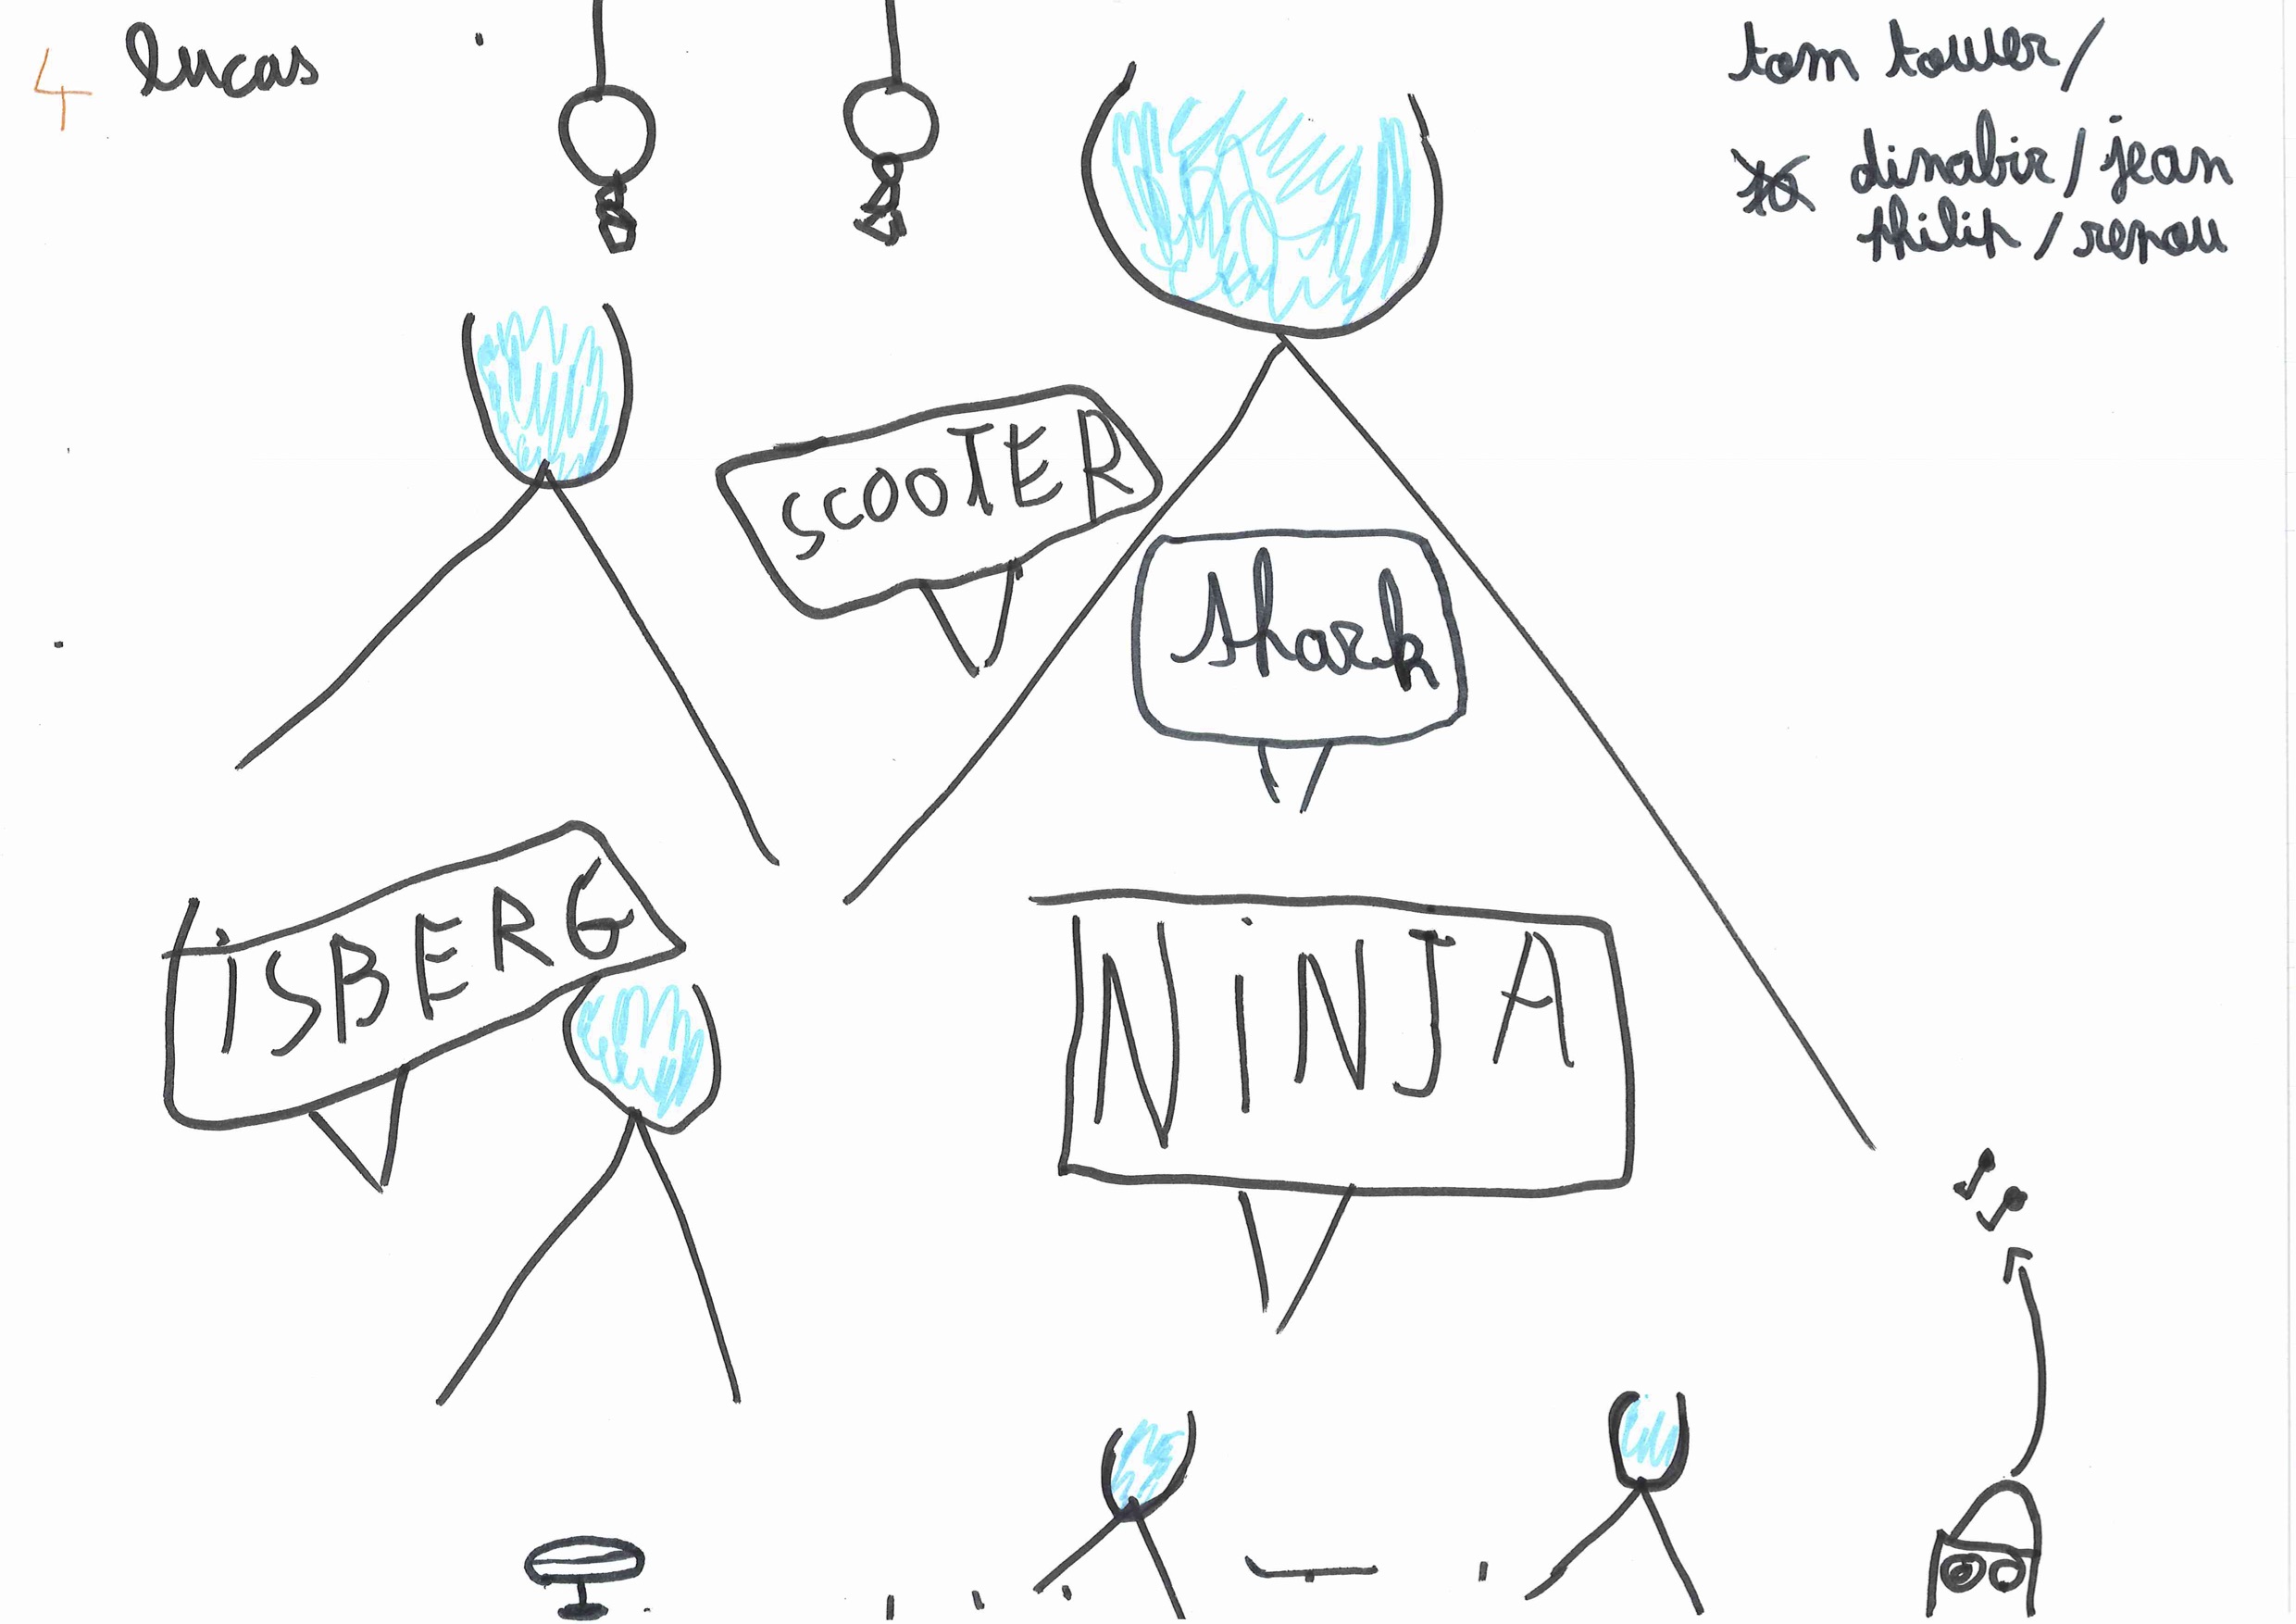 4 lucas
tom tower/
dinabir/jean
philip/renou
SCOOTER
shark
iSBERG
NiNJA